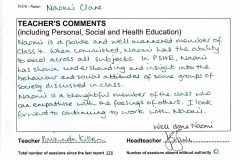 Pupil's Name: Naomi Clare
TEACHER'S COMMENTS
(including Personal, Social and Health Education)
Naomi is a polite and well mannered member of
Class 4. When committed, Naomi has the ability
to excel across all subjects. In PSHE, Naomi
has shown understanding and insight into the
behaviour and social attitudes of some groups
of society discussed in class.
Naomi is a thoughtful member of the class who
can empathise with the feelings of others. I look
forward to continuing to work with Naomi.
Well done Naomi
Teacher
Headteacher
Total number of sessions since the last report
Number of sessions absent without authority